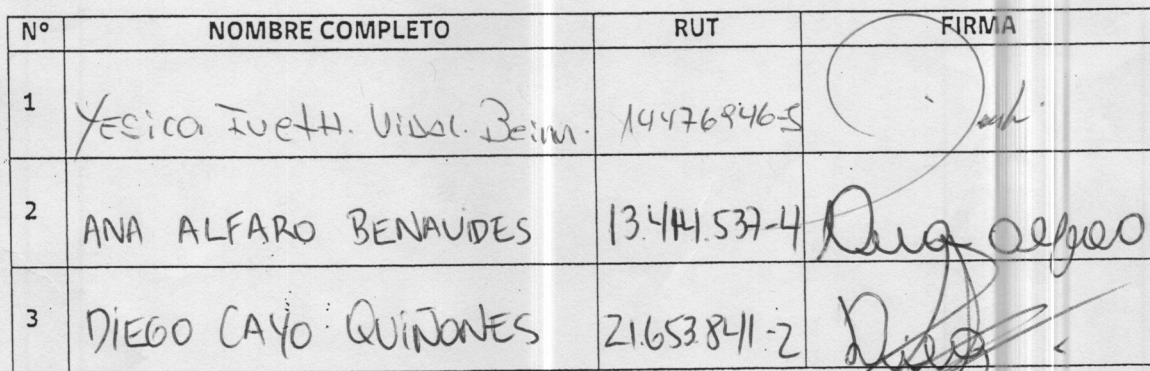 Nº NOMBRE COMPLETO RUT FIRMA
1 YESica Iveth. Vidal. 14476946-5
2 ANA ALFARO BENAVIDES 13.414.537-4 Ana Alfaro
3 DIEGO CAYO QUIÑONES 21.653.841-2 Diego